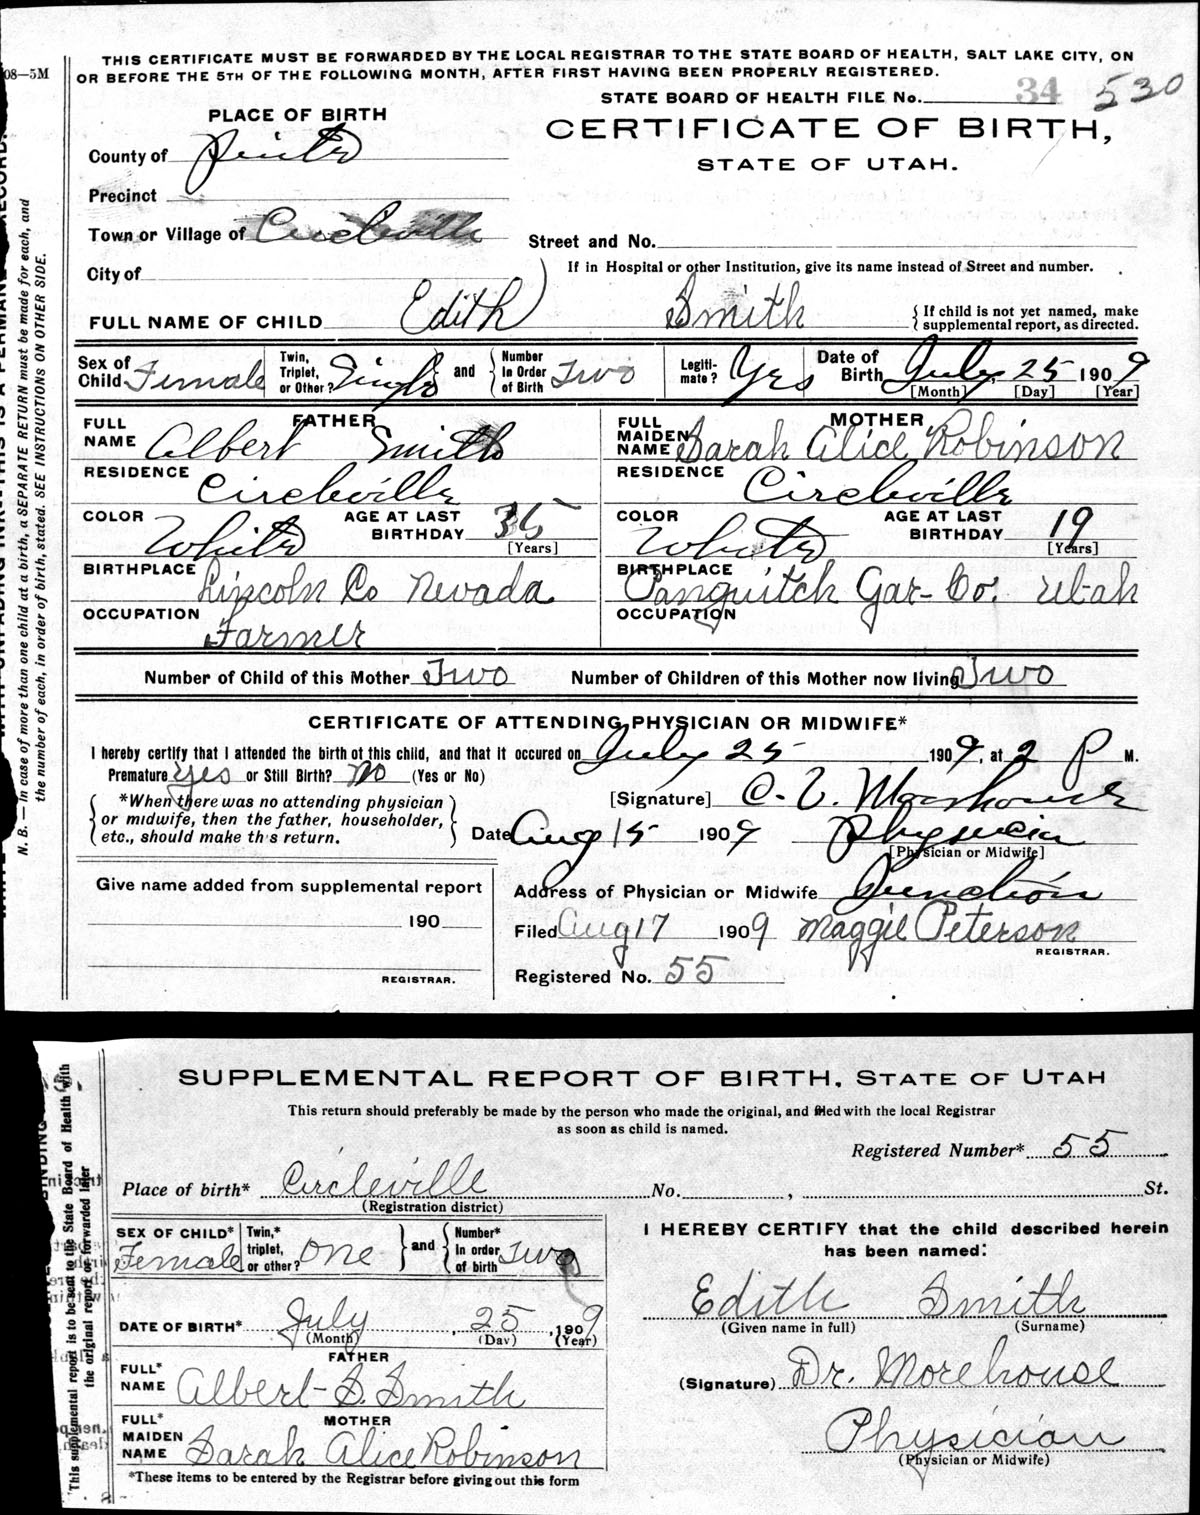 THIS CERTIFICATE MUST BE FORWARDED BY THE LOCAL REGISTRAR TO THE STATE BOARD OF HEALTH, SALT LAKE CITY, ON
08—5M
OR BEFORE THE 5TH OF THE FOLLOWING MONTH, AFTER FIRST HAVING BEEN PROPERLY REGISTERED.
STATE BOARD OF HEALTH FILE No. 34 530
PLACE OF BIRTH
CERTIFICATE OF BIRTH,
County of Piute
STATE OF UTAH.
Precinct
Town or Village of Circleville
Street and No.
City of
If in Hospital or other Institution, give its name instead of Street and number.
FULL NAME OF CHILD Edith Smith { If child is not yet named, make supplemental report, as directed.
Sex of Child Female Twin, Triplet, or Other? Single and { Number In Order of Birth Two Legiti- mate? Yes Date of Birth July 25 1909
[Month] [Day] [Year]
FATHER MOTHER
FULL NAME Albert Smith FULL MAIDEN NAME Sarah Alice Robinson
RESIDENCE Circleville RESIDENCE Circleville
COLOR White AGE AT LAST BIRTHDAY 35 [Years] COLOR White AGE AT LAST BIRTHDAY 19 [Years]
BIRTHPLACE Lincoln Co Nevada BIRTHPLACE Panguitch Gar- Co. Utah
OCCUPATION Farmer OCCUPATION
Number of Child of this Mother Two Number of Children of this Mother now living Two
CERTIFICATE OF ATTENDING PHYSICIAN OR MIDWIFE*
I hereby certify that I attended the birth of this child, and that it occured on July 25 1909, at 2 P M.
Premature yes or Still Birth? No (Yes or No)
{ *When there was no attending physician or midwife, then the father, householder, etc., should make this return. }
[Signature] C. V. Morehouse
Date Aug 15 1909 Physician
[Physician or Midwife]
Give name added from supplemental report
190
REGISTRAR.
Address of Physician or Midwife Junction
Filed Aug 17 1909 Maggie Peterson
REGISTRAR.
Registered No. 55
N. B.—In case of more than one child at a birth, a SEPARATE RETURN must be made for each, and
the number of each, in order of birth, stated. SEE INSTRUCTIONS ON OTHER SIDE.
SUPPLEMENTAL REPORT OF BIRTH, STATE OF UTAH
This return should preferably be made by the person who made the original, and filed with the local Registrar
as soon as child is named.
Registered Number* 55
Place of birth* Circleville No. , St.
(Registration district)
SEX OF CHILD* Female Twin,* triplet, or other? One } and { Number* In order of birth Two
DATE OF BIRTH* July , 25 , 1909
(Month) (Day) (Year)
FATHER
FULL* NAME Albert S. Smith
MOTHER
FULL* MAIDEN NAME Sarah Alice Robinson
*These items to be entered by the Registrar before giving out this form
I HEREBY CERTIFY that the child described herein
has been named:
Edith Smith
(Given name in full) (Surname)
(Signature) Dr. Morehouse
Physician
(Physician or Midwife)
This supplemental report is to be sent to the State Board of Health with
the original report or forwarded later